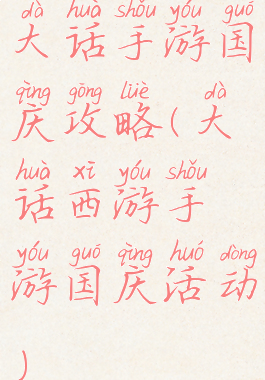 dà huà shǒu yóu guó
大话手游国
qìng gōng lüè dà
庆攻略(大
huà xī yóu shǒu
话西游手
yóu guó qìng huó dòng
游国庆活动
)